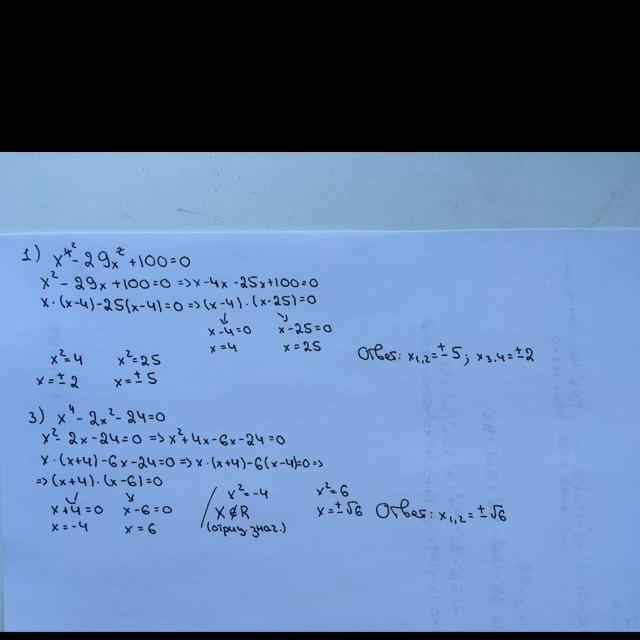 1) x⁴² - 29x² + 100 = 0
x² - 29x + 100 = 0 => x - 4x - 25x + 100 = 0
x · (x-4) - 25(x-4) = 0 => (x-4) · (x-25) = 0
↙ ↘
x-4=0 x-25=0
x=4 x=25
x²=4 x²=25
x=±2 x=±5
Ответ: x₁,₂=±5; x₃,₄=±2
3) x⁴ - 2x² - 24 = 0
x² - 2x - 24 = 0 => x² + 4x - 6x - 24 = 0
x · (x+4) - 6x - 24 = 0 => x · (x+4) - 6(x-4)=0 =>
=> (x+4) · (x-6) = 0
↙ ↘
x+4=0 x-6=0
x=-4 x=6
x²=-4 x²=6
x∉R x=±√6
(отриц. знач.)
Ответ: x₁,₂=±√6